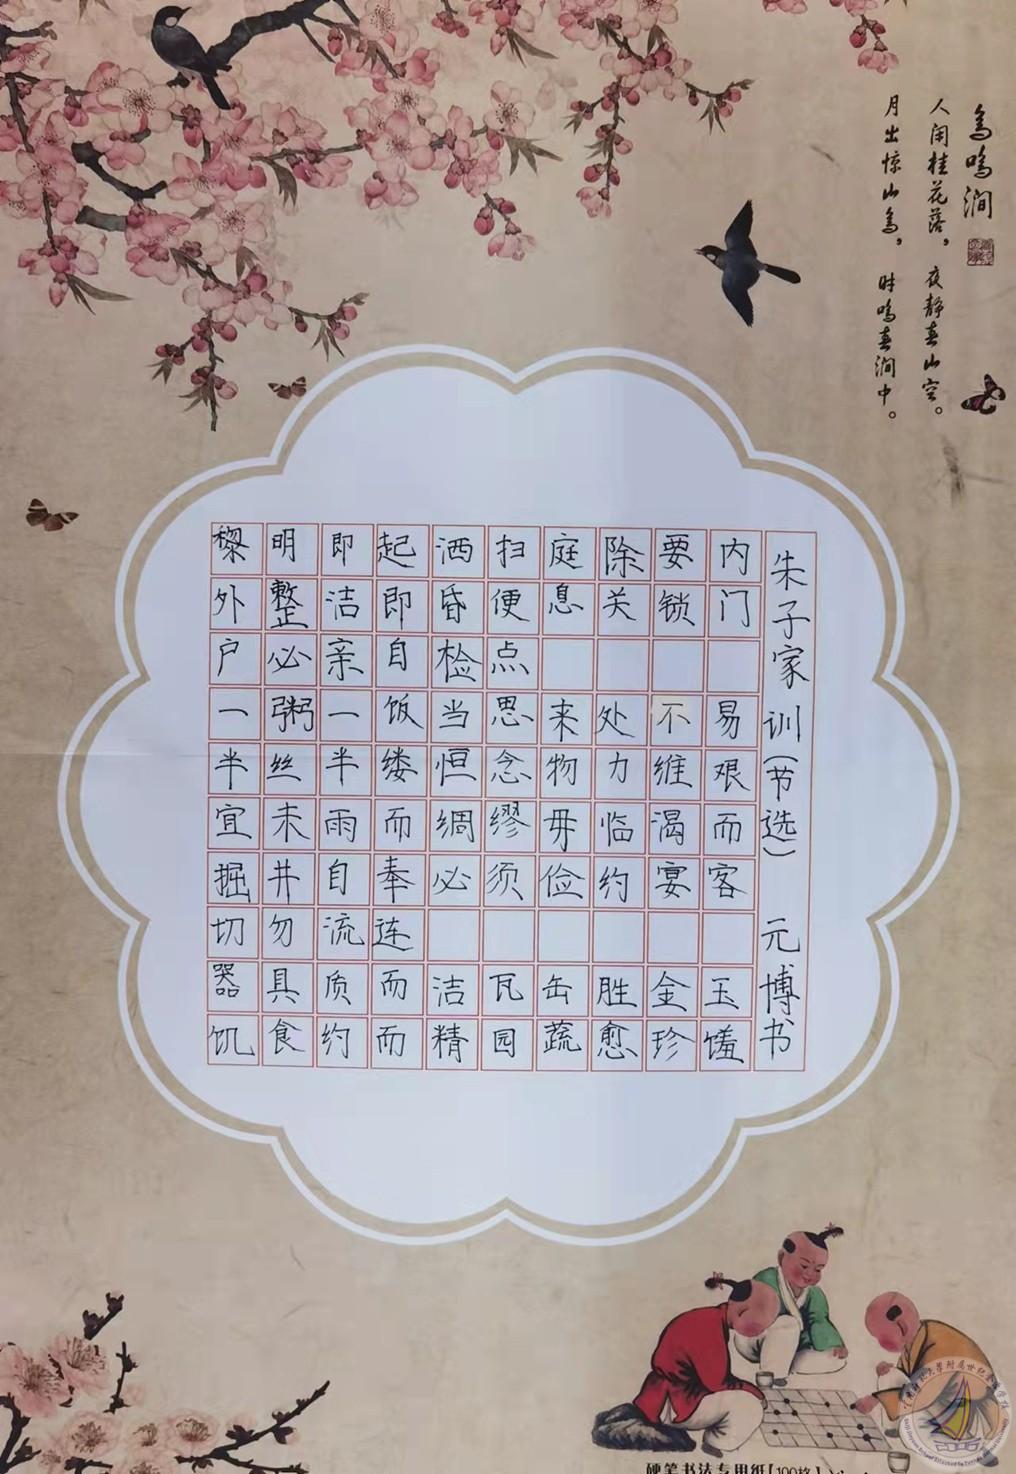 鸟鸣涧
人闲桂花落，夜静春山空。
月出惊山鸟，时鸣春涧中。
朱子家训（节选） 元博书
黎明即起洒扫庭除要内
外整洁即昏便息关锁门
户必亲自检点
一粥一饭当思来处不易
半丝半缕恒念物力维艰
宜未雨而绸缪毋临渴而
掘井自奉必须俭约宴客
切勿流连
器具质而洁瓦缶胜金玉
饥食约而精园蔬愈珍馐
硬笔书法专用纸【100格】